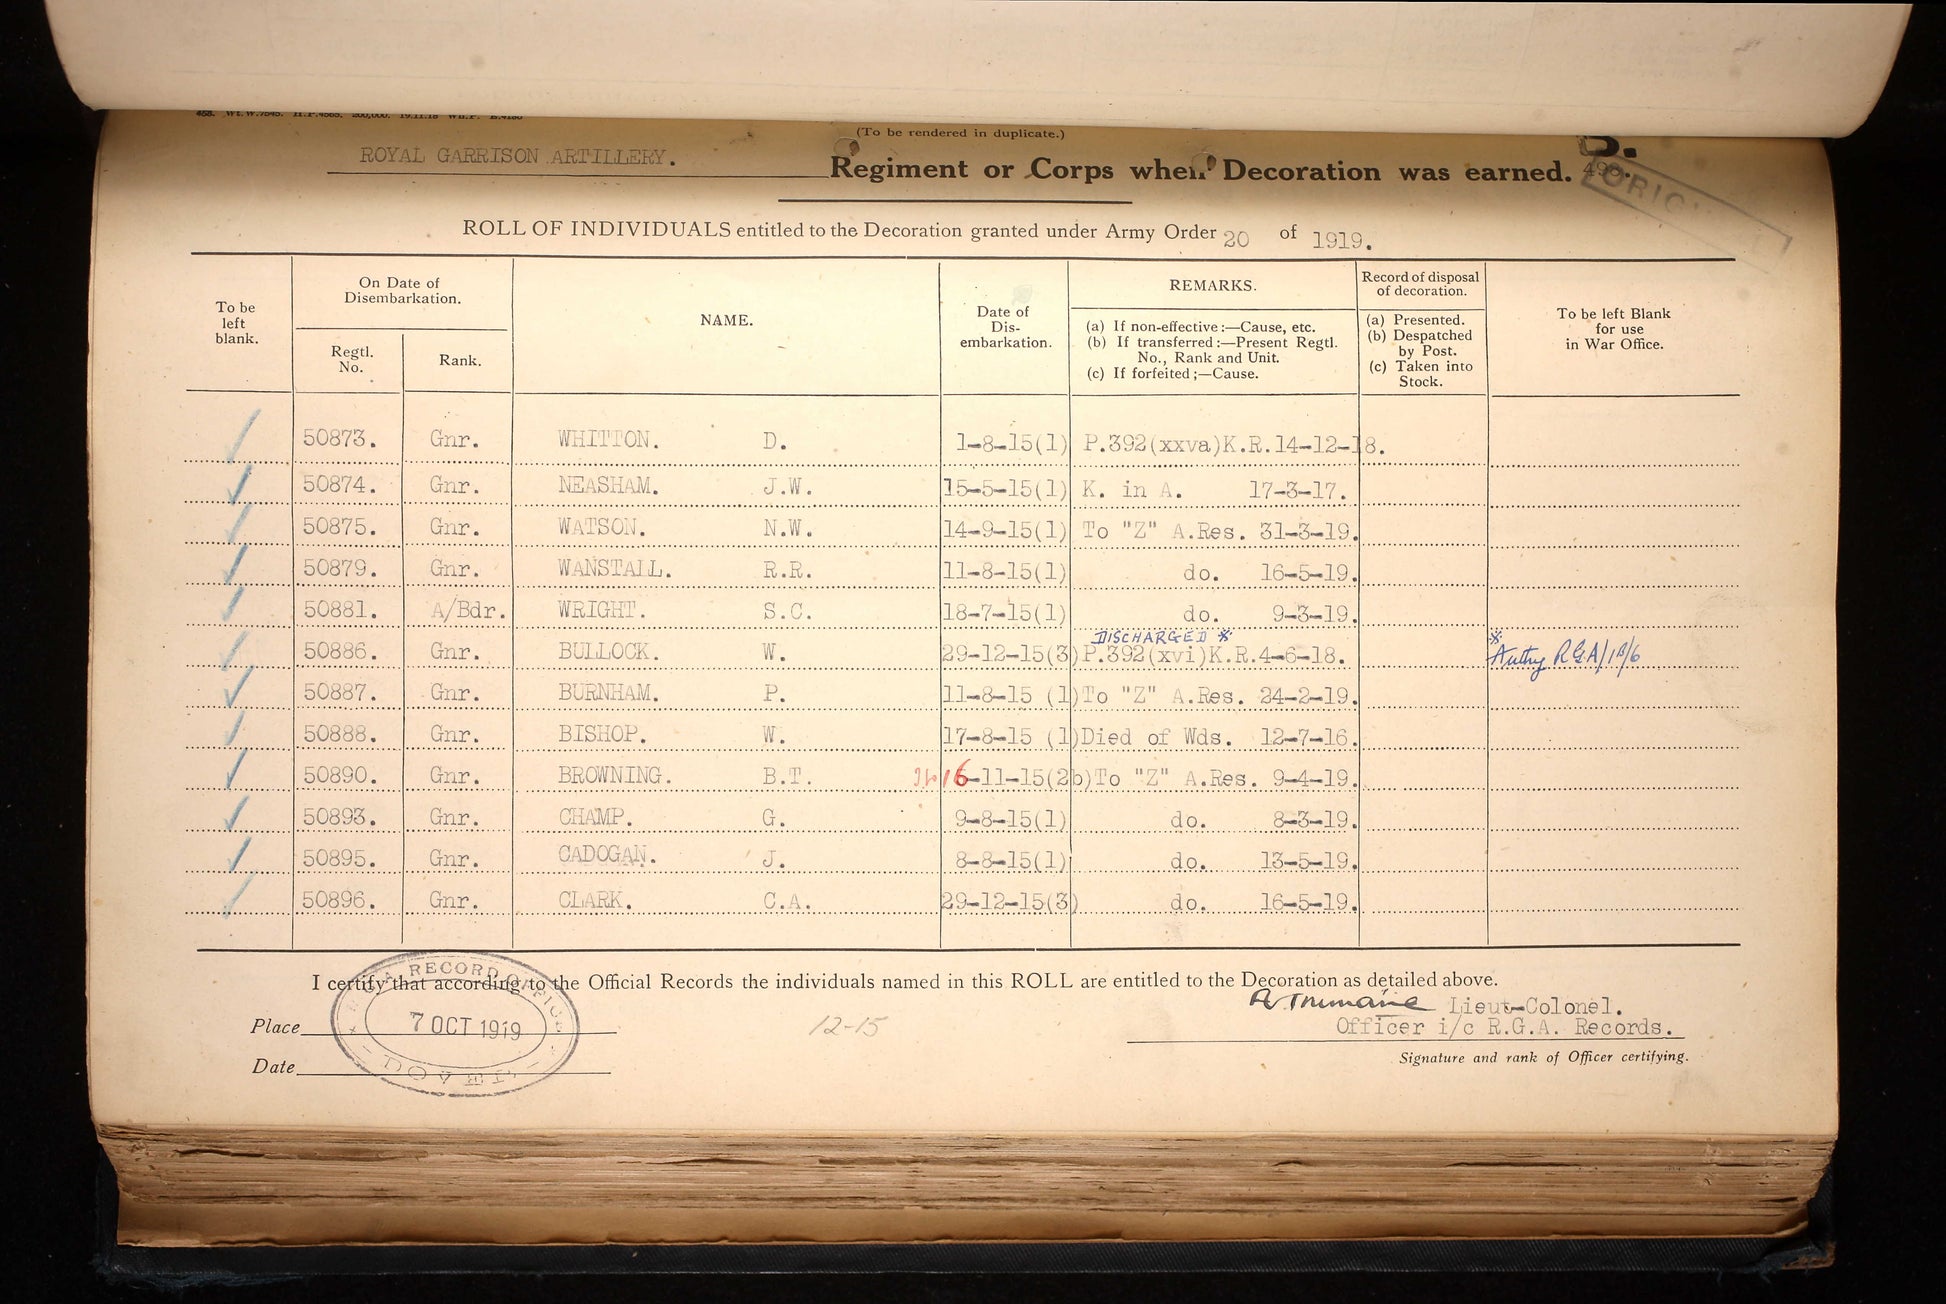 (To be rendered in duplicate.)
ROYAL GARRISON ARTILLERY. Regiment or Corps when Decoration was earned.
ROLL OF INDIVIDUALS entitled to the Decoration granted under Army Order 20 of 1919.
To be left blank.
On Date of Disembarkation.
Regtl. No.
Rank.
NAME.
Date of Dis-embarkation.
REMARKS.
(a) If non-effective:—Cause, etc.
(b) If transferred:—Present Regtl. No., Rank and Unit.
(c) If forfeited;—Cause.
Record of disposal of decoration.
(a) Presented.
(b) Despatched by Post.
(c) Taken into Stock.
To be left Blank for use in War Office.
50873. Gnr. WHITTON. D. 1-8-15(1) P.392(xxva)K.R.14-12-18.
50874. Gnr. NEASHAM. J.W. 15-5-15(1) K. in A. 17-3-17.
50875. Gnr. WATSON. N.W. 14-9-15(1) To "Z" A.Res. 31-3-19.
50879. Gnr. WANSTALL. R.R. 11-8-15(1) do. 16-5-19.
50881. A/Bdr. WRIGHT. S.C. 18-7-15(1) do. 9-3-19.
DISCHARGED *
50886. Gnr. BULLOCK. W. 29-12-15(3) P.392(xvi)K.R.4-6-18. * Authy R.G.A/
50887. Gnr. BURNHAM. P. 11-8-15 (1) To "Z" A.Res. 24-2-19.
50888. Gnr. BISHOP. W. 17-8-15 (1) Died of Wds. 12-7-16.
50890. Gnr. BROWNING. B.T. 16-11-15(2b) To "Z" A.Res. 9-4-19.
50893. Gnr. CHAMP. G. 9-8-15(1) do. 8-3-19.
50895. Gnr. CADOGAN. J. 8-8-15(1) do. 13-5-19.
50896. Gnr. CLARK. C.A. 29-12-15(3) do. 16-5-19.
I certify that according to the Official Records the individuals named in this ROLL are entitled to the Decoration as detailed above.
Lieut-Colonel.
Officer i/c R.G.A. Records.
Signature and rank of Officer certifying.
Place
Date
RECORD OFFICE
7 OCT 1919
DOVER
12-15